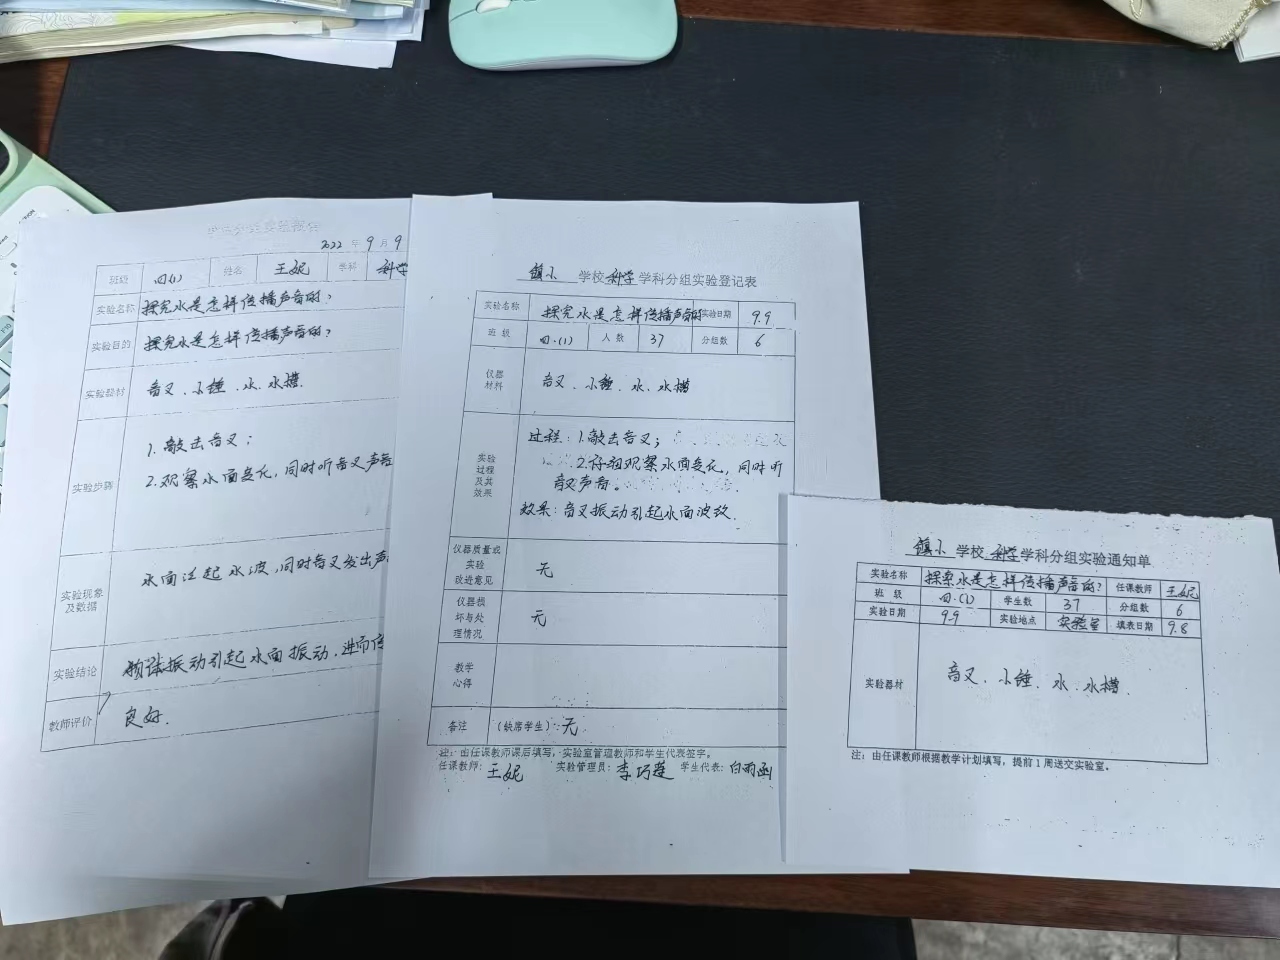 学生分组实验报告
2022年9月9
班级 四(1) 姓名 王妮 学科 科学
实验名称 探究水是怎样传播声音的?
实验目的 探究水是怎样传播声音的?
实验器材 音叉、小锤、水、水槽.
实验步骤
1.敲击音叉;
2.观察水面变化,同时听音叉声音
实验现象及数据 水面泛起水波,同时音叉发出声
实验结论 物体振动引起水面振动,进而传
教师评价 良好.
镇小 学校科学学科分组实验登记表
实验名称 探究水是怎样传播声音的 实验日期 9.9
班 级 四.(1) 人 数 37 分组数 6
仪器材料 音叉、小锤、水、水槽
实验过程及其效果
过程:1.敲击音叉;
2.仔细观察水面变化,同时听
音叉声音。
效果:音叉振动引起水面波纹.
仪器质量或实验改进意见 无
仪器损坏与处理情况 无
教学心得
备注 (缺席学生):无
注:由任课教师课后填写,实验室管理教师和学生代表签字。
任课教师:王妮 实验管理员:李巧莲 学生代表:白雨函
镇小 学校科学学科分组实验通知单
实验名称 探索水是怎样传播声音的? 任课教师 王妮
班 级 四.(1) 学生数 37 分组数 6
实验日期 9.9 实验地点 实验室 填表日期 9.8
实验器材 音叉、小锤、水、水槽.
注:由任课教师根据教学计划填写,提前1周送交实验室。